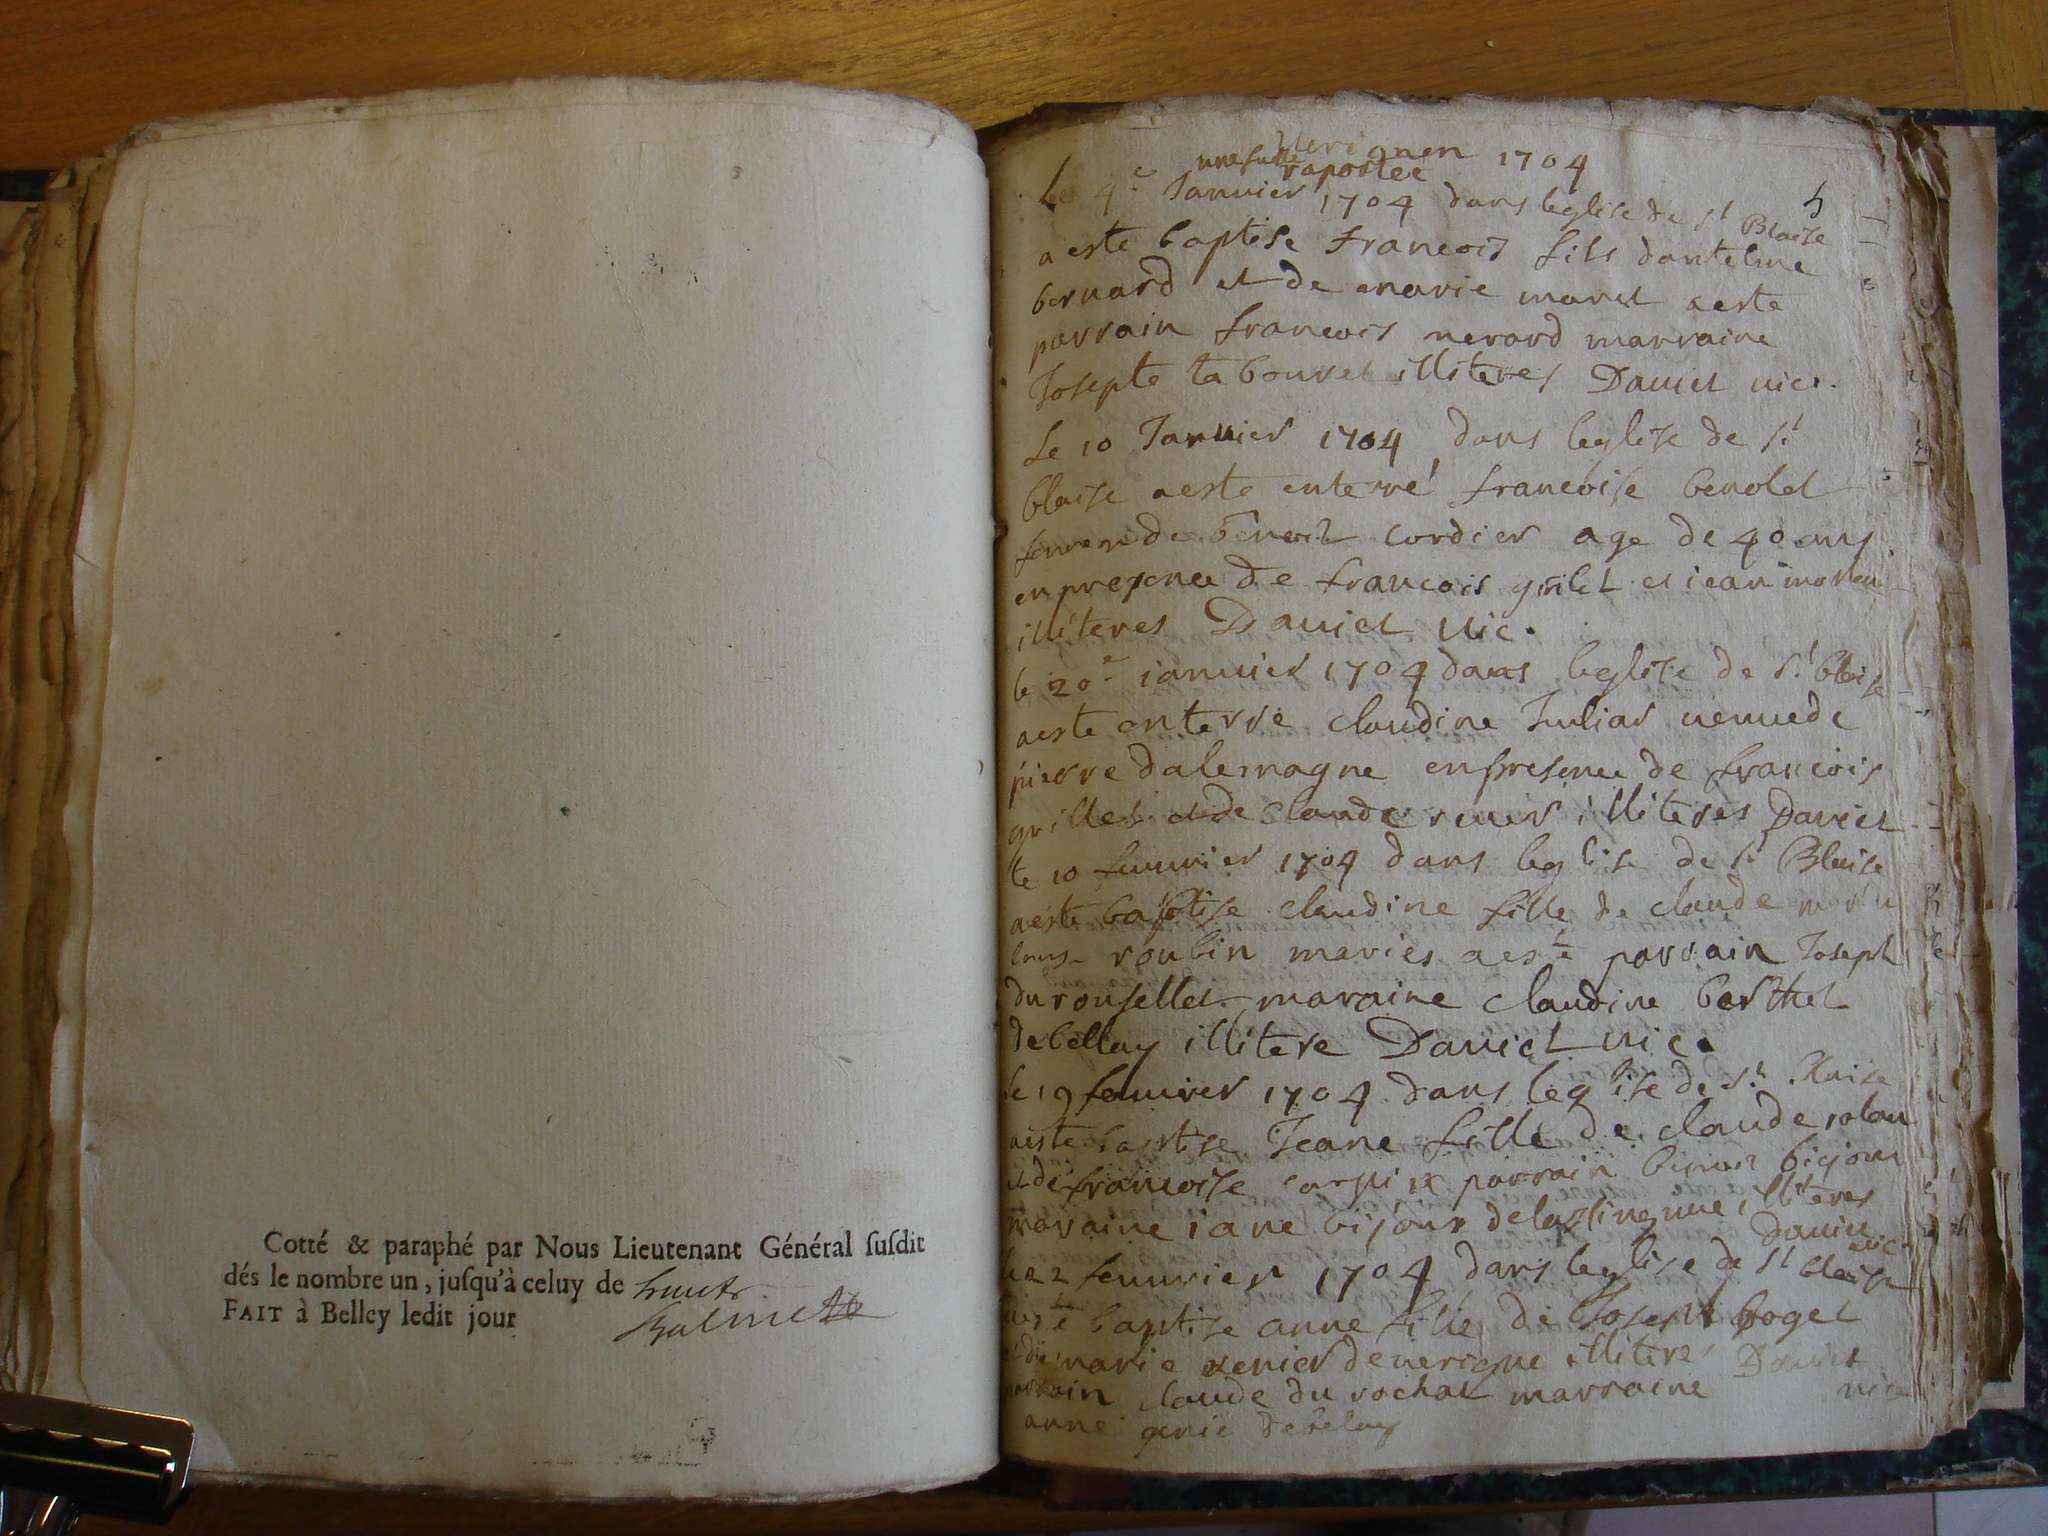 Cotté & paraphé par Nous Lieutenant Général susdit
dés le nombre un, jusqu'à celuy de huict
FAIT à Belley ledit jour
1704
raportee
Le 4e Janvier 1704 dans leglise de st Blaise
5
a este baptise francois fils dantelme
bernard et de marie maret aeste
parrain francois nerard marraine
Josepte tabouret illiteres Daniel vic.
Le 10 Janvier 1704 dans leglise de st
blaise aeste enterré francoise
de benoit cordier age de 40 ans
en presence de francois grilet et jean
illiteres Daniel vic.
le 20e ianvier 1704 dans leglise de st blaise
aeste enterre claudine Juliar veuve de
pierre dalemagne en presence de francois
grillet et de claude illiteres Daniel
le 10 fevvrier 1704 dans leglise de st Blaise
aeste baptise claudine fille de claude
roubin maries aeste parrain Joseph
du rousellet maraine claudine berthet
de bellay illitere Daniel vic.
le 19 fevvrier 1704 dans leglise de st Blaise
aeste baptise Jeane fille de claude
et de francoise parrain
maraine iane bijour illiteres
Daniel vic
fevvrier 1704 dans leglise de st blaise
aeste baptise anne fille de Joseph
et de marie illitere Daniel
parrain claude du rochat marraine vic
anne genie de belay